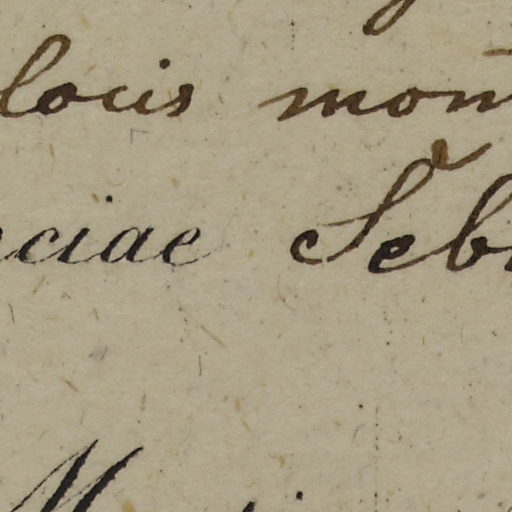 locis mon
ciae Seb
M